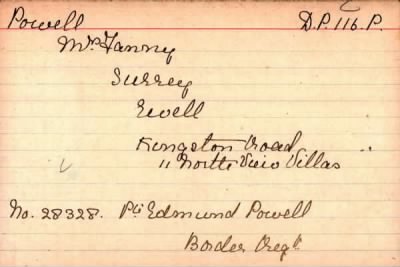 Powell D.P. 116.P.
Mrs Fanny
Surrey
Ewell
Kingston Road "
11 North View Villas
No. 28328. Pte Edmund Powell
Border Regt